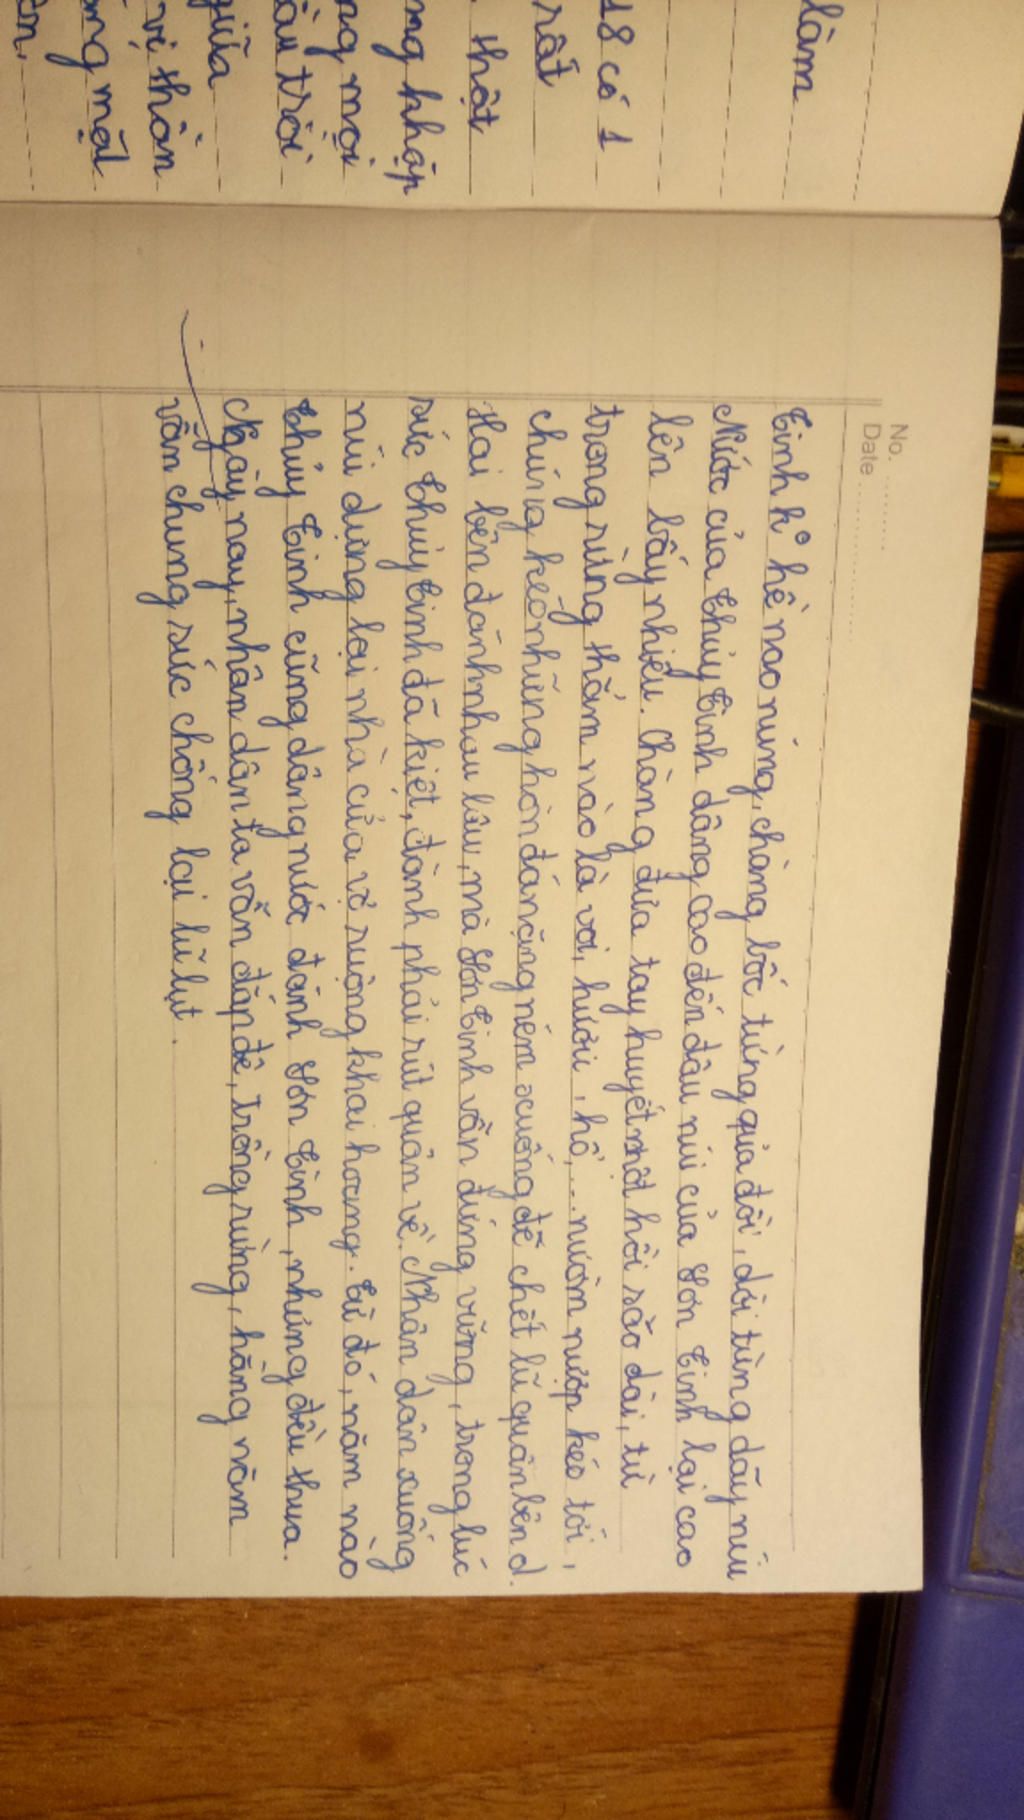 lâm
18 có 1
rất
thật
ng nhập
ng mọi
ầu trời
giữa
vị thần
ong mặt
ên,
No. ............
Date ......................
Tinh k° hề nao núng, chàng bốc từng quả đồi, dời từng dãy núi
Nước của Thủy Tinh dâng cao đến đâu núi của Sơn Tinh lại cao
lên bấy nhiêu. Chàng đưa tay huyết một hồi sáo dài, từ
trong rừng thẳm nào là voi, hươu, hổ,... nườm nượp kéo tới,
chúng kéo những hòn đá nặng ném xuống để chết lũ quân bên d.
Hai bên đánh nhau lâu, mà Sơn Tinh vẫn đứng vững, trong lúc
sức Thủy Tinh đã kiệt, đành phải rút quân về. Nhân dân xuống
núi dựng lại nhà cửa vỡ ruộng khai hoang. Từ đó, năm nào
Thủy Tinh cũng dâng nước đánh Sơn Tinh, nhưng đều thua.
Ngày nay, nhân dân ta vẫn đắp đê, trồng rừng, hằng năm
vẫn chung sức chống lại lũ lụt.